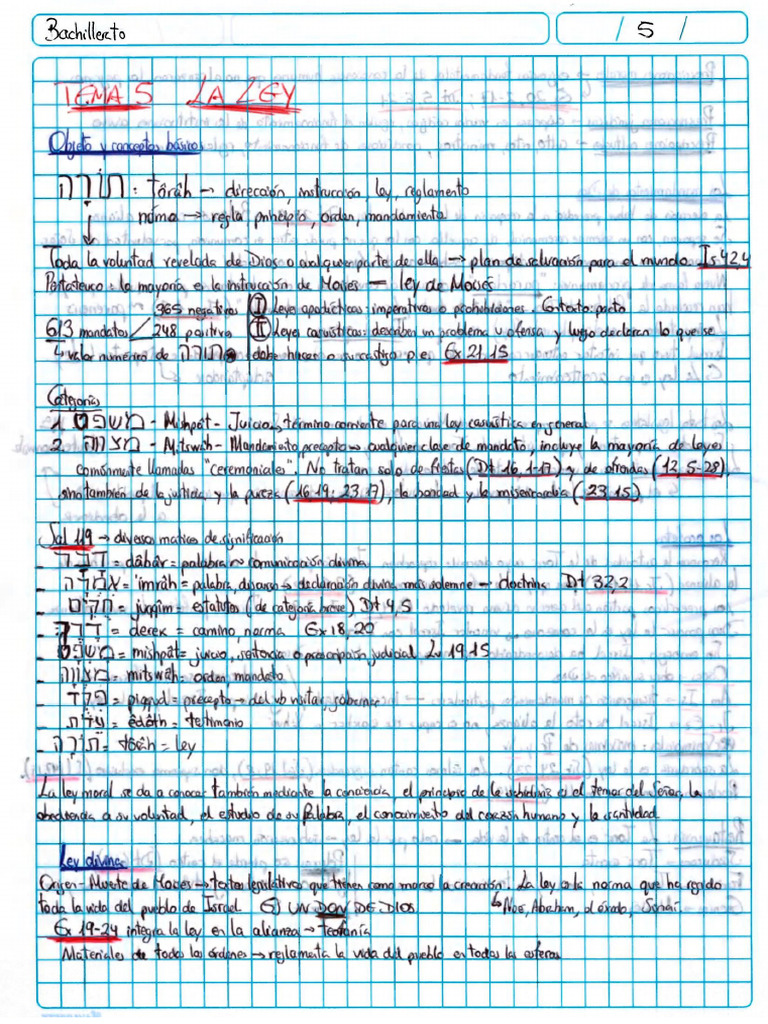 Bachillerato
/ 5 /
TEMA 5 LA LEY
Objeto y conceptos básicos
תּוֹרָה: Tôrâh → dirección, instrucción, ley, reglamento
nóma → regla principio, orden, mandamiento
Toda la voluntad revelada de Dios o cualquier parte de ella → plan de salvación para el mundo Is 42,4
Pentateuco: la mayoría es la instrucción de Moisés = ley de Moisés
613 mandatos
365 negativos
248 positivos
valor numérico de תורה
I Leyes apodícticas: imperativos o prohibiciones. Contexto: pacto
II Leyes casuísticas: describen un problema u ofensa y luego declaran lo que se
debe hacer o su castigo p.e. Ex 21,15
Categorías
1. מִשְׁפָּט - Mishpât - Juicio, término corriente para una ley casuística en general
2. מִצְוָה - Mitswâh - Mandamiento, precepto → cualquier clase de mandato, incluye la mayoría de leyes
comúnmente llamadas "ceremoniales". No tratan solo de fiestas (Dt 16,1-17) y de ofrendas (12,5-28)
sino también de la justicia y la pureza (16 19; 23 17), la bondad y la misericordia (23,15)
Sal 119 → diversos matices de significación
- דָּבָר = dâbâr = palabra → comunicación divina
- אִמְרָה = 'imrâh = palabra, discurso → declaración divina más solemne - doctrina Dt 32,2
- חֻקִּים = juqqim = estatutos (de categoría breve) Dt 4,5
- דֶּרֶךְ = derex = camino, norma Ex 18,20
- מִשְׁפָּט = mishpât = juicio, sentencia o prescripción judicial Lv 19,15
- מִצְוָה = mitswâh = orden, mandato
- פקד = piqqud = precepto → del vb visitar, gobernar
- עדת = êdôth = testimonio
- תּוֹרָה = tôrâh = ley
La ley moral se da a conocer también mediante la conciencia, el principio de la sabiduría es el temor del Señor, la
obediencia a su voluntad, el estudio de su Palabra, el conocimiento del corazón humano y la santidad
Ley divina
Origen - Muerte de Moisés → textos legislativos que tienen como marco la creación. La ley es la norma que ha regido
toda la vida del pueblo de Israel. ES UN DON DE DIOS. ↳ Noé, Abraham, el éxodo, Sinaí.
Ex 19-24 integra la ley en la alianza → Teofanía
Materiales de todos los órdenes → reglamenta la vida del pueblo en todas las esferas